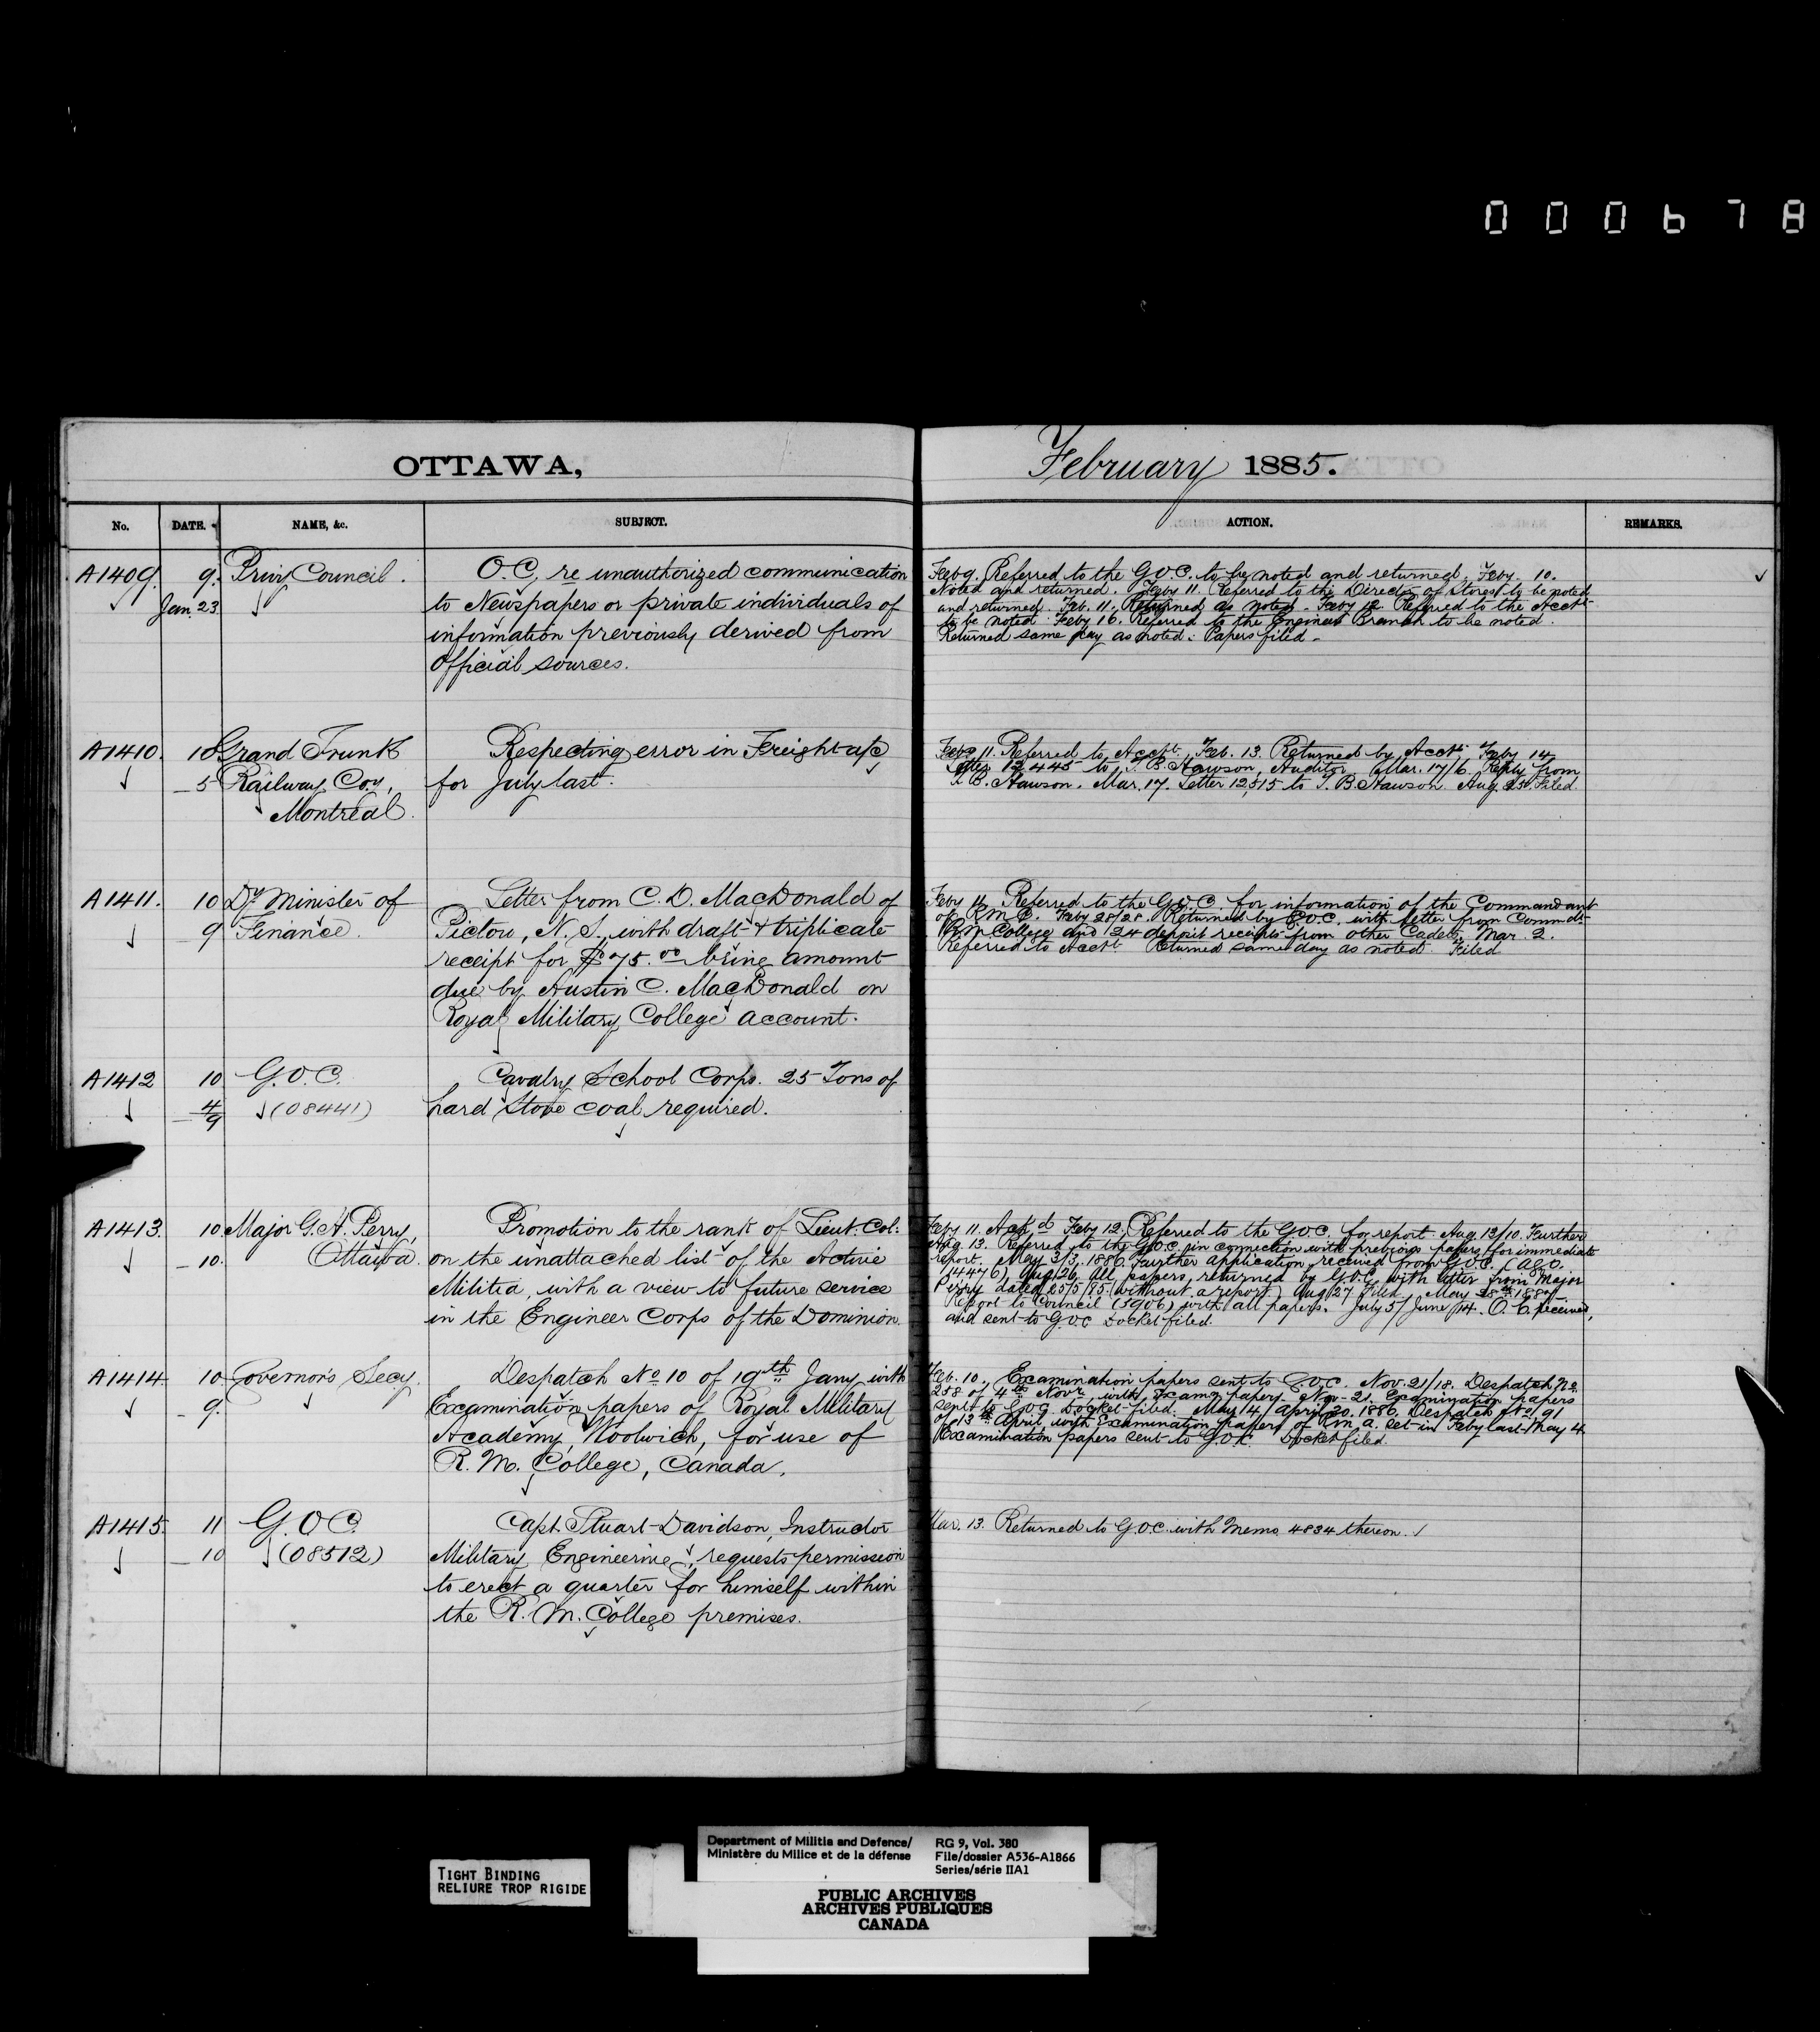 000678
OTTAWA,
February 1885.
No. DATE. NAME, &c. SUBJECT. ACTION. REMARKS.
A1409. 9. Privy Council. O.C. re unauthorized communication
Jan. 23 to Newspapers or private individuals of
information previously derived from
Official sources.
Feby 9. Referred to the G.O.C. to be noted and returned. Feby. 10.
Noted and returned. Feby 11 Referred to the Director of Stores to be noted
and returned. Feb. 11. Returned as noted. Feby 12 Referred to the Acctt
to be noted. Feby 16. Referred to the Engineer Branch to be noted.
Returned same day as noted. Papers filed.
A1410. 10 Grand Trunk Respecting error in Freight a/c
5 Railway Coy, for July last.
Montreal.
Feby 11. Referred to Acctt. Feb. 13. Returned by Acctt. Feby 14
Letter 12445 to T. B. Hawson, Auditor. Mar. 17/6. Reply from
T. B. Hawson. Mar. 17. Letter 12,515 to T. B. Hawson. Aug. 25. Filed.
A1411. 10 Dy Minister of Letter from C. D. MacDonald of
9 Finance. Pictou, N. S., with draft & triplicate
receipt for $75.00 being amount
due by Austin C. MacDonald on
Royal Military College account.
Feby 11. Referred to the G.O.C. for information of the Commandant
of R M C. Feby 28/28. Returned by G.O.C. with letter from Commdt
R. M. College and 24 deposit receipts from other Cadets. Mar. 2.
Referred to Acctt. Returned same day as noted. Filed
A1412 10 G.O.C. Cavalry School Corps. 25 Tons of
4/9 (08441) hard Stove coal required.
A1413. 10. Major G. A. Perry, Promotion to the rank of Lieut. Col:
10. Ottawa. on the unattached list of the Active
Militia, with a view to future service
in the Engineer Corps of the Dominion.
Feby 11. Ackd Feby 12. Referred to the G.O.C. for report. Aug. 13/10. Further
Aug. 13. Referred to the G.O.C. in connection with previous papers for immediate
report. May 3/3. 1886. Further application received from G.O.C. (A.G.O.
14476) Aug. 26. All papers returned by G.O.C. with letter from Major
Perry dated 25/5/85. (without a report) Aug 27 Filed. May 28th 1887
Report to Council (5906) with all papers. July 5/June 14. O. C. received,
and sent to G.O.C. Docket filed.
A1414. 10. Governor's Secy. Despatch No 10 of 19th Jany with
9. Examination papers of Royal Military
Academy, Woolwich, for use of
R. M. College, Canada.
Feb. 10. Examination papers sent to G.O.C. Nov. 21/18. Despatch No.
258 of 4th Novr with Examn papers. Nov. 21. Examination papers
sent to G.O.C. Docket filed. May 14/April 30. 1886. Despatch No 91
of 13th April with Examination papers of R M. A. set in Feby last. May 4.
Examination papers sent to G.O.C. Docket filed.
A1415. 11 G.O.C. Capt. Stuart-Davidson, Instructor
10 (08512) Military Engineering, requests permission
to erect a quarter for himself within
the R. M. College premises.
Mar. 13. Returned to G.O.C. with Memo 4834 thereon.
TIGHT BINDING
RELIURE TROP RIGIDE
Department of Militia and Defence/
Ministère du Milice et de la défense
RG 9, Vol. 380
File/dossier A536-A1866
Series/série IIA1
PUBLIC ARCHIVES
ARCHIVES PUBLIQUES
CANADA